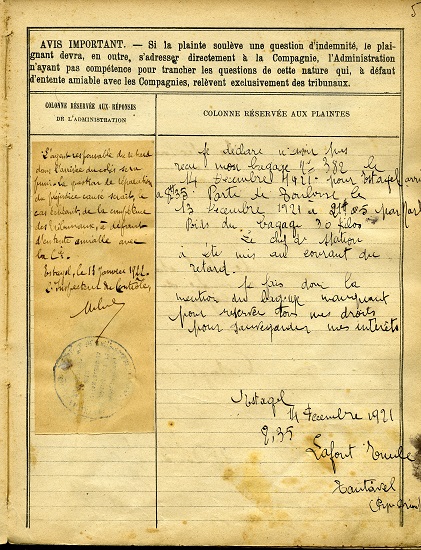 5
AVIS IMPORTANT. — Si la plainte soulève une question d'indemnité, le plai-
gnant devra, en outre, s'adresser directement à la Compagnie, l'Administration
n'ayant pas compétence pour trancher les questions de cette nature qui, à défaut
d'entente amiable avec les Compagnies, relèvent exclusivement des tribunaux.
COLONNE RÉSERVÉE AUX RÉPONSES
DE L'ADMINISTRATION
L'agent responsable du retard
dans l'arrivée du colis sera
puni. La question de réparation
du préjudice causé serait, le
cas échéant, de la compétence
des tribunaux, à défaut
d'entente amiable avec
la Cie.
Estagel, le 18 Janvier 1922
L'Inspecteur du Contrôle,
COLONNE RÉSERVÉE AUX PLAINTES
Je déclare n'avoir pas
reçu mon bagage N° 382 le
14 Décembre 1921 pour Estagel
Parti de Toulouse le
13 Décembre 1921 à
Poids du bagage 30 kilos
Le chef de Station
a été mis au courant du
retard.
Je fais donc la
mention du bagage manquant
pour réserver tous mes droits
pour sauvegarder mes intérêts
Estagel
14 Décembre 1921
9,35
Lafont
Tautavel